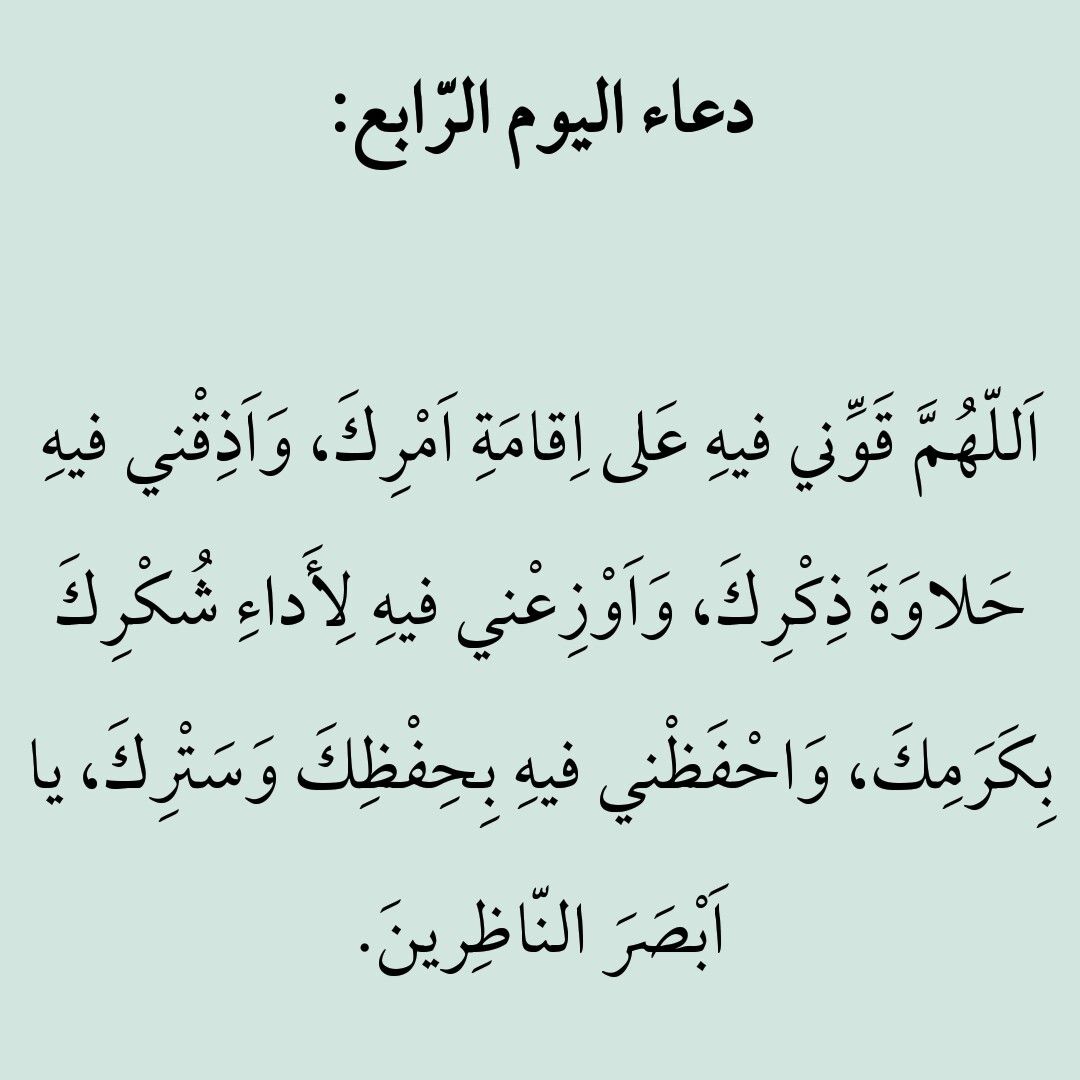 دعاء اليوم الرّابع:
اَللّهُمَّ قَوِّني فيهِ عَلى اِقامَةِ اَمْرِكَ، وَاَذِقْني فيهِ
حَلاوَةَ ذِكْرِكَ، وَاَوْزِعْني فيهِ لِأَداءِ شُكْرِكَ
بِكَرَمِكَ، وَاحْفَظْني فيهِ بِحِفْظِكَ وَسَتْرِكَ، يا
اَبْصَرَ النّاظِرينَ.